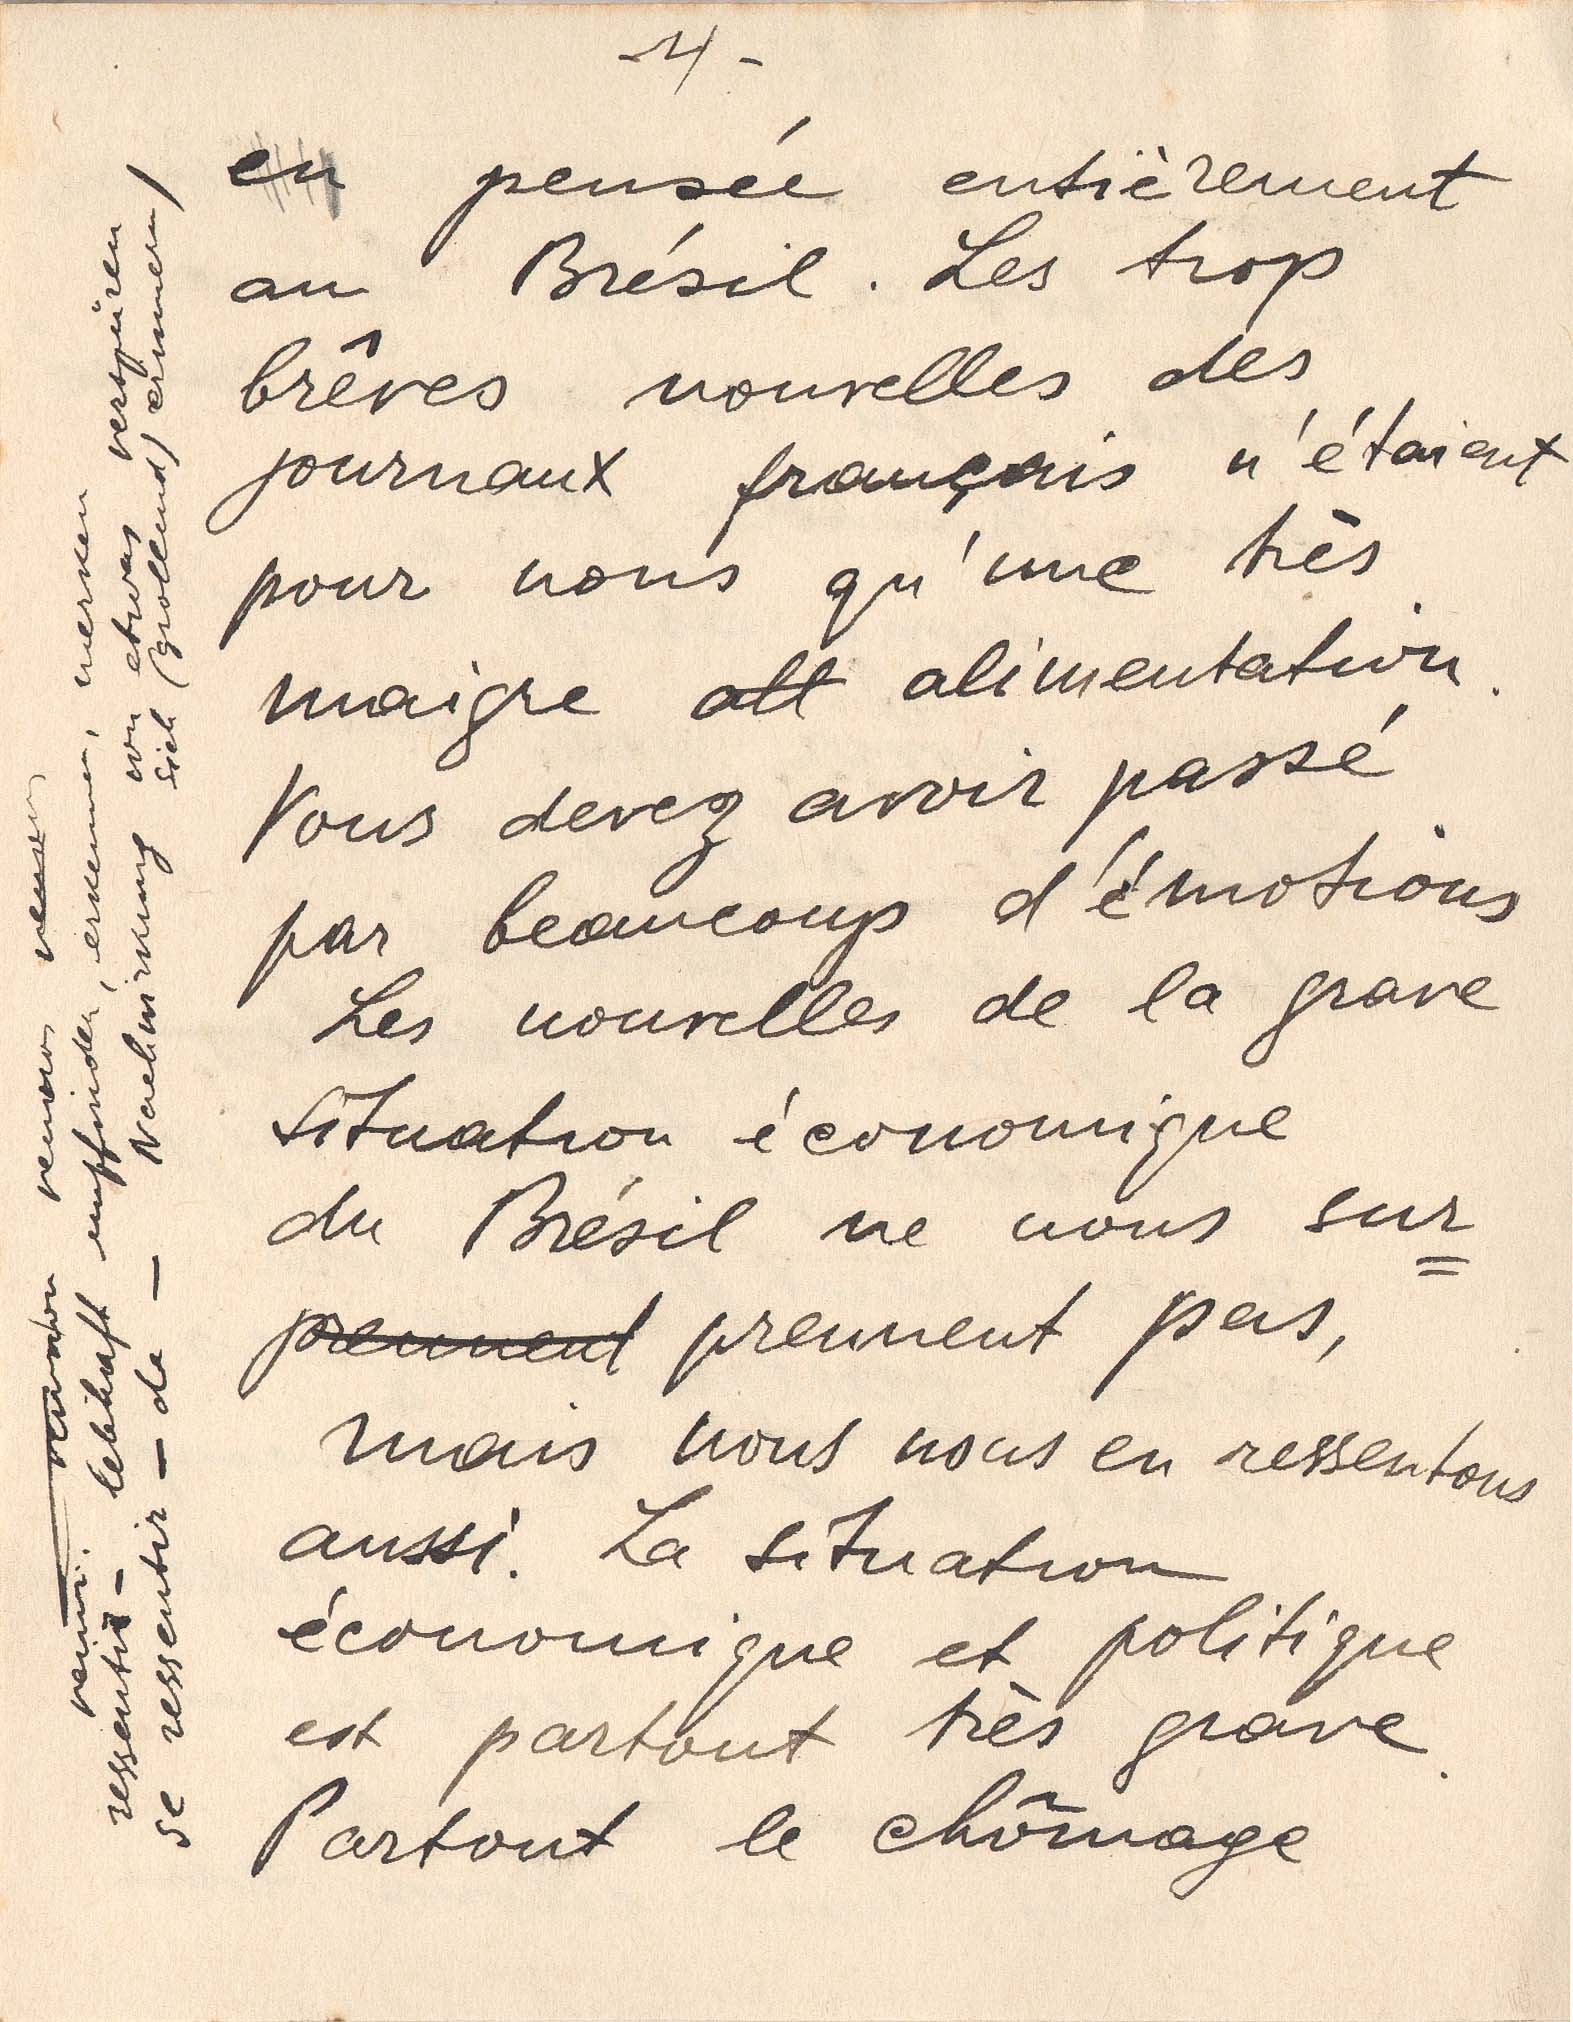 -4-
en pensée entièrement
au Brésil. Les trop
brêves nouvelles des
journaux français n'étaient
pour nous qu'une très
maigre alt alimentation.
Vous devez avoir passé
par beaucoup d'émotions
Les nouvelles de la grave
situation économique
du Brésil ne nous sur=
prennent prennent pas,
mais nous nous en ressentons
aussi. La situation
économique et politique
est partout très grave.
Partout le chômage
ressentir - lebhaft empfinden, erkennen, merken
se ressentir - de - Nachwirkung von etwas verspüren
sich (grollend) erinnern)